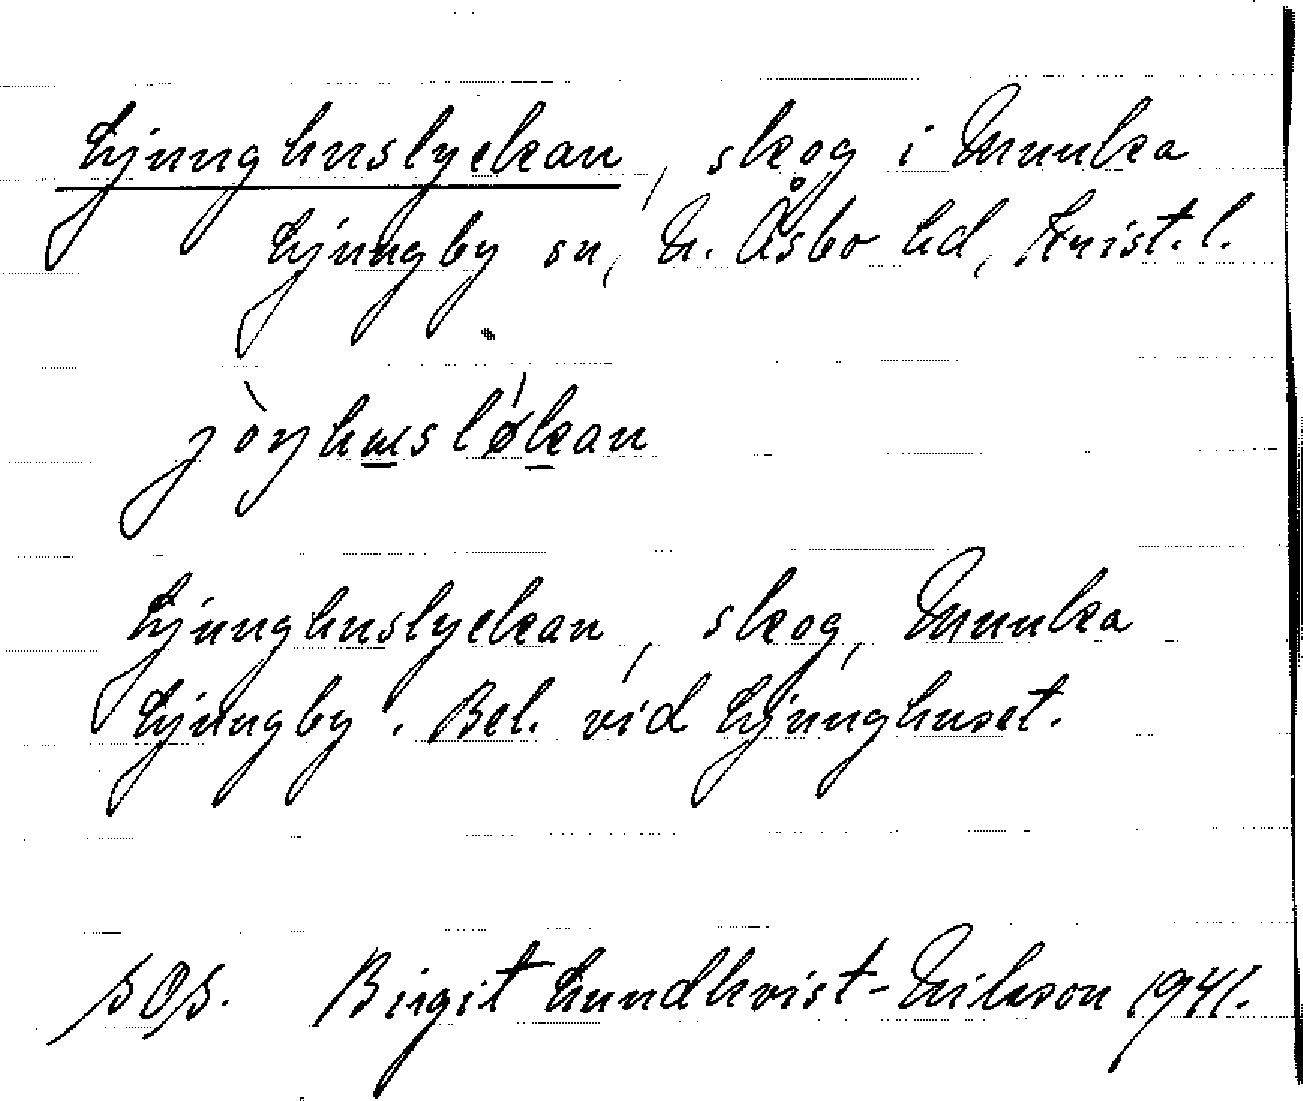 Ljunghuslyckan, skog i Munka
Ljungby sn, N. Åsbo hd, Krist. l.
jòŋhusløkan
Ljunghuslyckan, skog, Munka
Ljungby. Bel. vid Ljunghuset.
SOS. Birgit Lundkvist-Nilsson 1941.